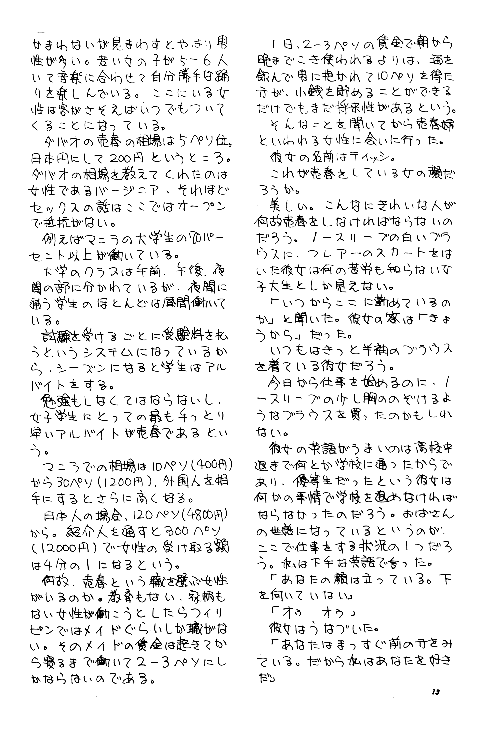 かまわないが見まわすとやはり男
性が多い。若い女の子が5〜6人
いて音楽に合わせて自分勝手な踊
りを楽しんでいる。ここにいる女
性は客がさそえばいつでもついて
くることになっている。
ダバオの売春の相場は5ペソ位。
日本円にして200円というところ。
ダバオの相場を教えてくれたのは
女性であるバージニア、それほど
セックスの話はここではオープン
で抵抗がない。
例えばマニラの大学生の70パー
セント以上が働いている。
大学のクラスは午前、午後、夜
間の部に分かれているが、夜間に
通う学生のほとんどは昼間働いて
いる。
試験を受けるごとに受験料を払
うというシステムになっているか
ら、シーズンになると学生はアル
バイトをする。
勉強もしなくてはならないし、
女子学生にとっての最も手っとり
早いアルバイトが売春であるとい
う。
マニラでの相場は10ペソ(400円)
から30ペソ(1200円)、外国人を相
手にするとさらに高くなる。
日本人の場合、120ペソ(4800円)
から。紹介人を通すと300ペソ
(12000円)で女性の受け取る額
は4分の1になるという。
何故、売春という職を選ぶ女性
がいるのか。教養もない、
ない女性が働こうとしたらフィリ
ピンではメイドぐらいしか職がな
い。そのメイドの賃金は起きてか
ら寝るまで働いて2-3ペソにし
かならないのである。
1日、2-3ペソの賃金で朝から
晩までこき使われるよりは、酒を
飲んで男に抱かれて10ペソを得た
方が、小銭を貯めることができる
だけでもまだ将来性があるという。
そんなことを聞いてから売春婦
といわれる女性に会いに行った。
彼女の名前はティッシ。
これが売春をしている女の顔だ
ろうか。
美しい。こんなにきれいな人が
何故売春をしなければならないの
だろう。ノースリーブの白いブラ
ウスに、フレアーのスカートをは
いた彼女は何の苦労も知らない女
子大生としか見えない。
「いつからここに勤めているの
か」と聞いた。彼女の答は「きょ
うから」だった。
いつもはきっと半袖のブラウス
を着ている彼女だろう。
今日から仕事を始めるのに、ノ
ースリーブの少し胸ののぞけるよ
うなブラウスを買ったのかもしれ
ない。
彼女の英語がうまいのは高校中
退まで何とか学校に通ったからで
あり、優等生だったという彼女は
何かの事情で学校を退めなければ
ならなかったのだろう。おばさん
の世話になっているというのが、
ここで仕事をする状況の1つだろ
う。私は下手な英語で言った。
「あなたの顔は立っている。下
を向いていない」
「オゥ オゥ」
彼女はうなづいた。
「あなたはまっすぐ前の方をみ
ている。だから私はあなたを好き
だ」
13